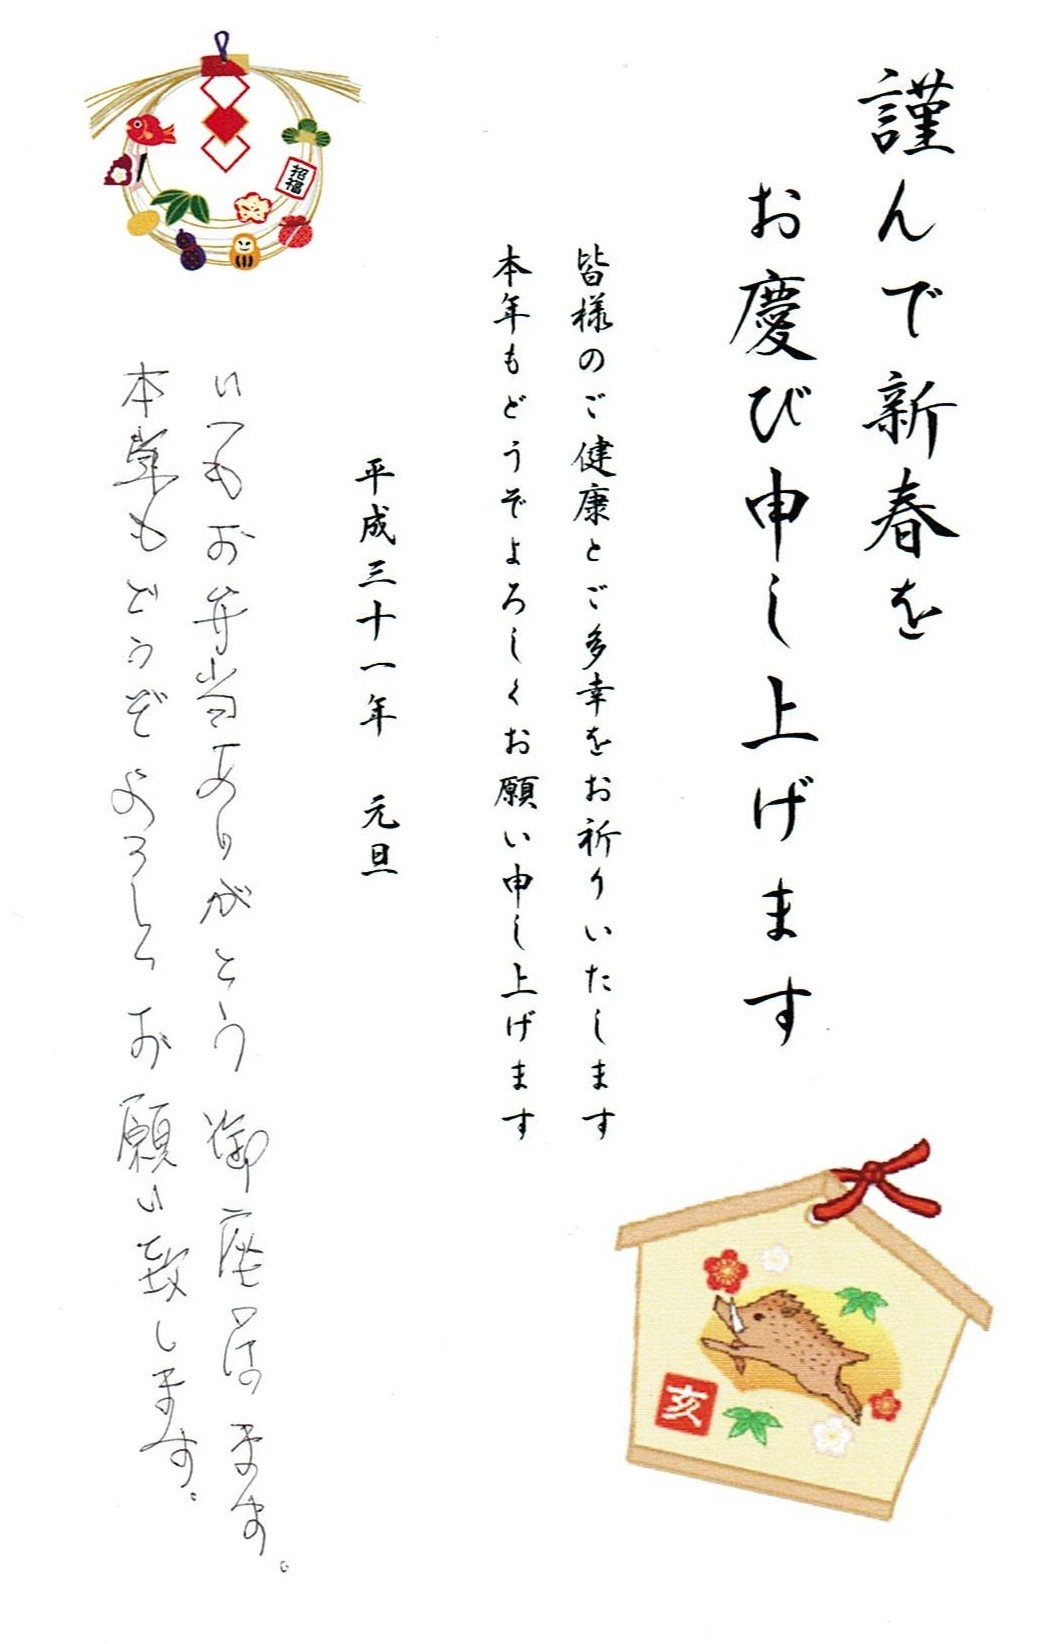 謹んで新春を
お慶び申し上げます
皆様のご健康とご多幸をお祈りいたします
本年もどうぞよろしくお願い申し上げます
平成三十一年 元旦
いつもお弁当ありがとう御座居ます。
本年もどうぞよろしくお願い致します。
招福
亥